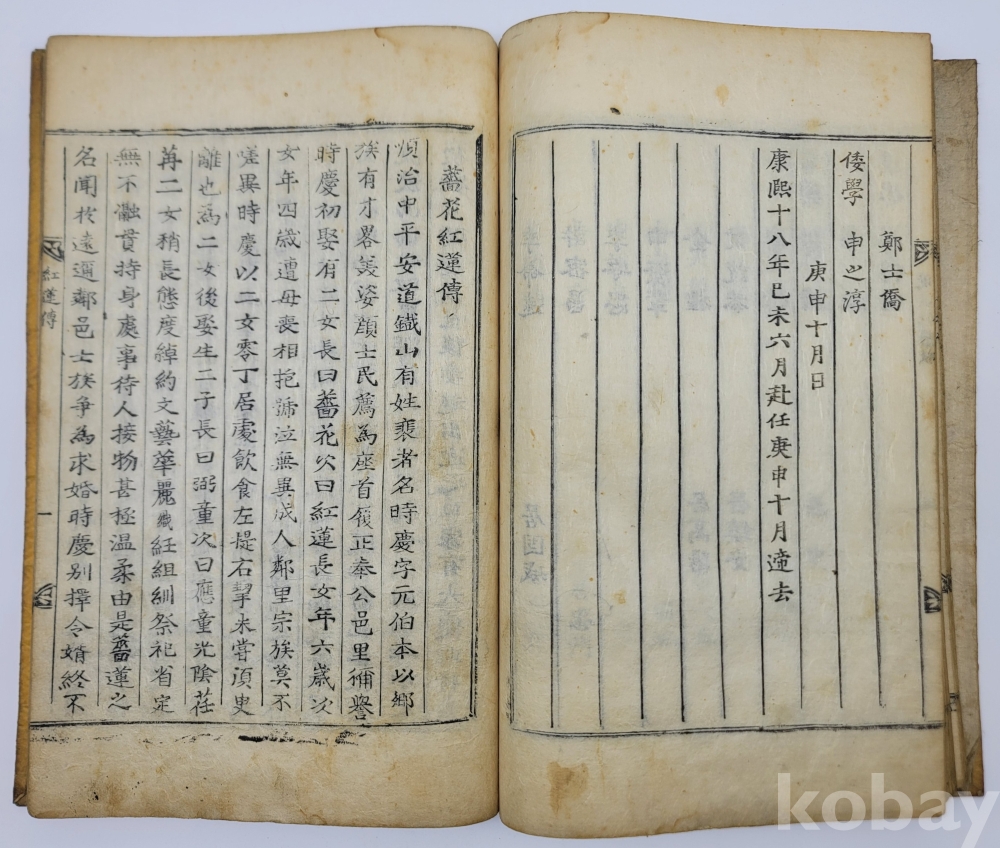 鄭士僑
倭學 申之淳
庚申十月日
康熙十八年己未六月赴任庚申十月遞去
薔花紅蓮傳
順治中平安道鐵山有姓裴者名時慶字元伯本以鄉
族有才畧美姿顔士民薦為座首履正奉公邑里彌譽
時慶初娶有二女長曰薔花次曰紅蓮長女年六歲次
女年四歲遭母喪相抱號泣無異成人鄰里宗族莫不
嗟異時慶以二女零丁居處飲食左提右挈未嘗須臾
離也為二女後娶生二子長曰弼童次曰應童光陰荏
苒二女稍長態度綽約文藝華麗織紝組紃祭祀省定
無不瀜貫持身處事待人接物甚極溫柔由是薔蓮之
名聞於遠邇鄰邑士族爭為求婚時慶別擇令婿終不
紅蓮傳
一
kobay